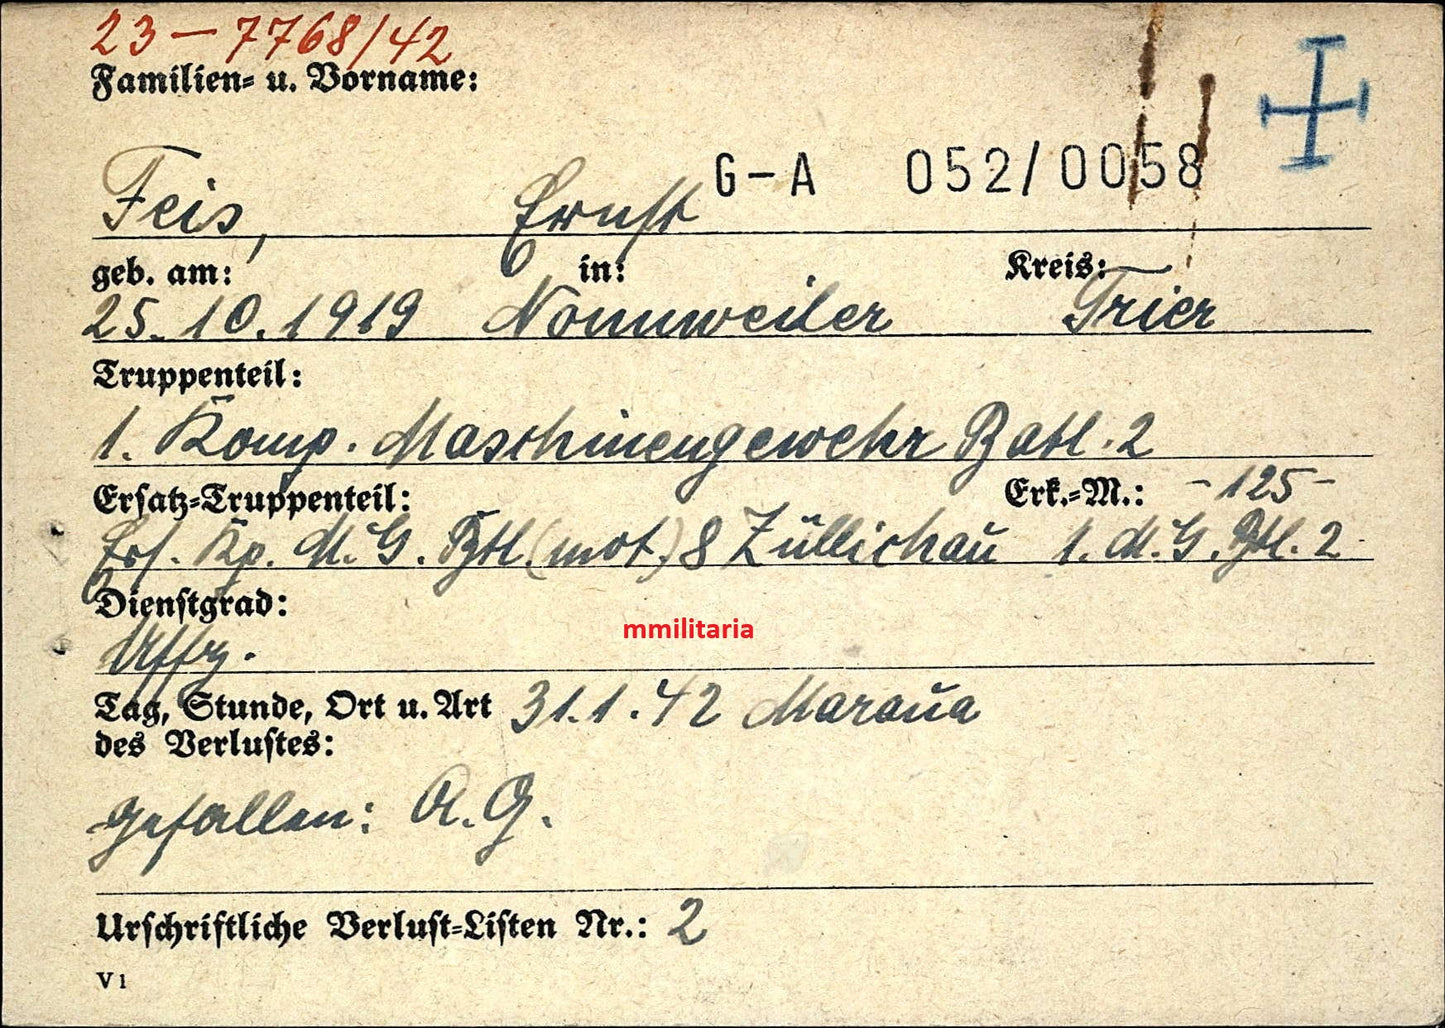 23 – 7768/42
Familien- u. Vorname:
G – A 052/0058
Feis, Ernst
geb. am: in: Kreis:
25. 10. 1919 Nonnweiler Trier
Truppenteil:
1. Komp. Maschinengewehr Batl. 2
Ersatz-Truppenteil: Erk.-M.: - 125 -
Ers. Kp. M. G. Btl. (mot.) 8 Züllichau 1. M. G. Btl. 2
Dienstgrad:
Uffz.
Tag, Stunde, Ort u. Art 31. 1. 42 Maraua
des Verlustes:
gefallen: A. G.
Urschriftliche Verlust-Listen Nr.: 2
V 1
mmilitaria